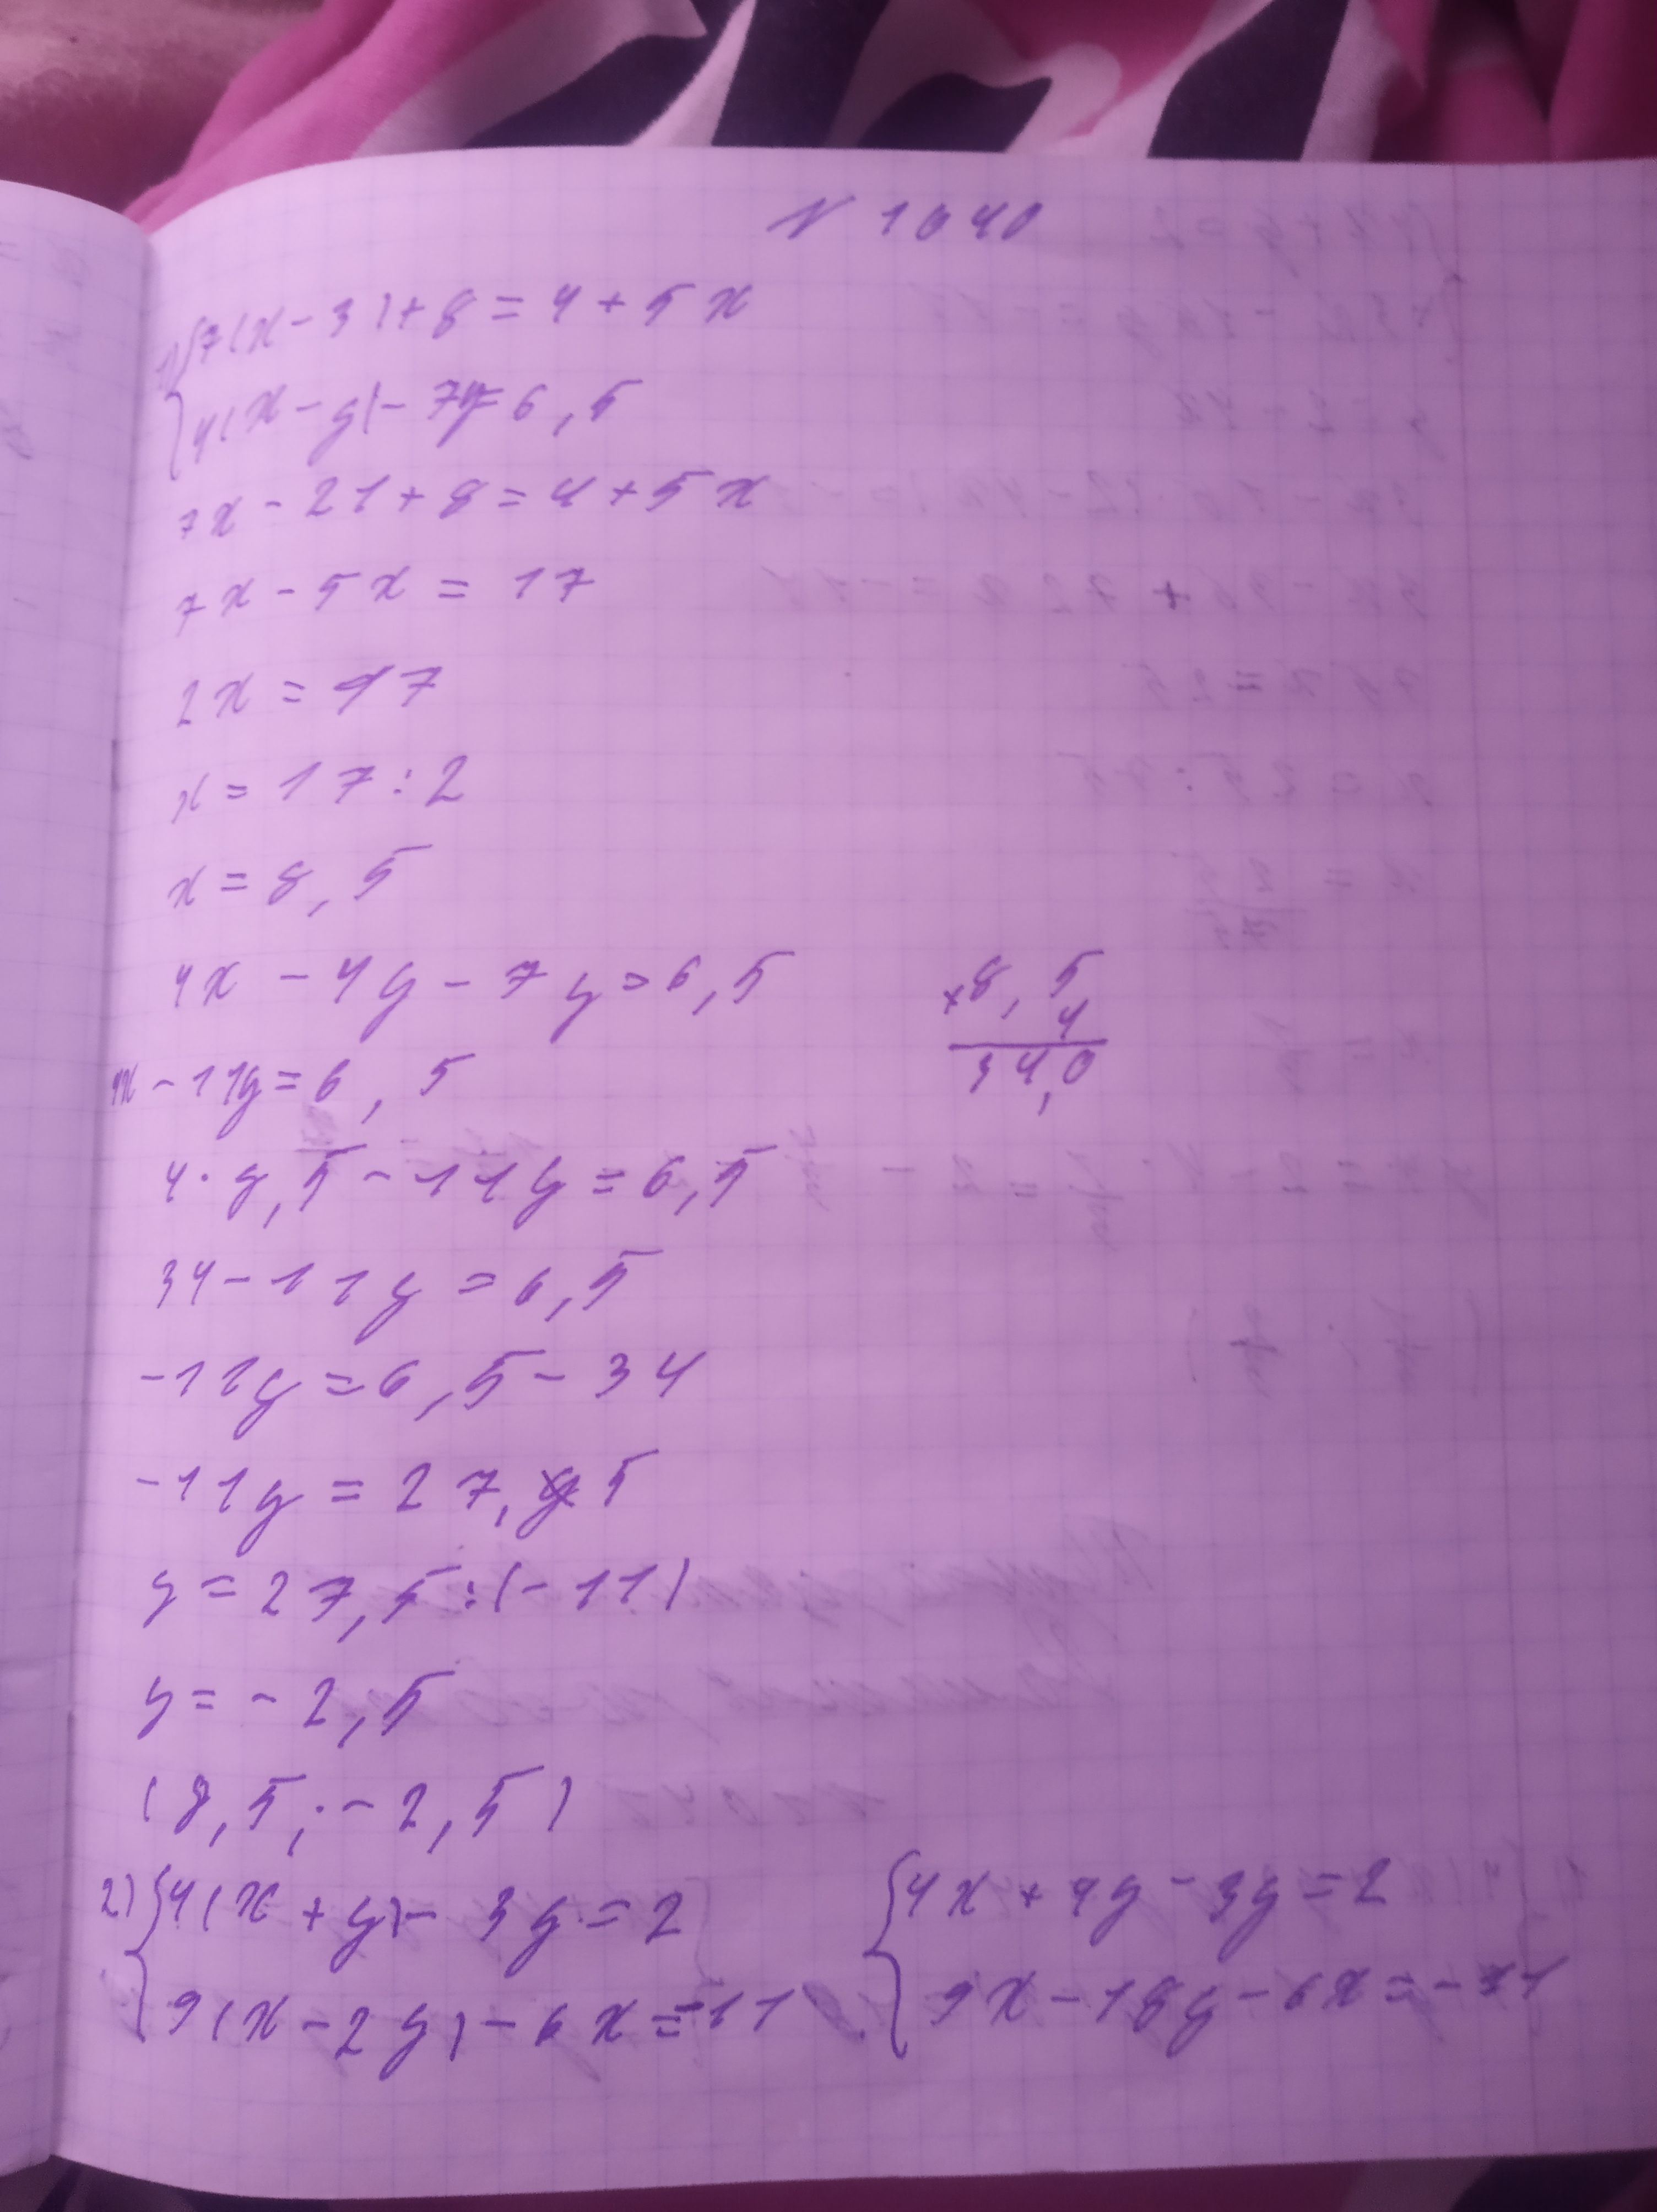 N 1040
1) {7(x - 3) + 8 = 4 + 5x
{4(x - y) - 7y = 6,5
7x - 21 + 8 = 4 + 5x
7x - 5x = 17
2x = 17
x = 17 : 2
x = 8,5
4x - 4y - 7y = 6,5
× 8,5
4
34,0
4x - 11y = 6,5
4 · 8,5 - 11y = 6,5
34 - 11y = 6,5
-11y = 6,5 - 34
-11y = 27,5
y = 27,5 : (-11)
y = -2,5
(8,5; -2,5)
2) {4(x + y) - 3y = 2
{9(x - 2y) - 6x = -11
{4x + 4y - 3y = 2
{9x - 18y - 6x = -11